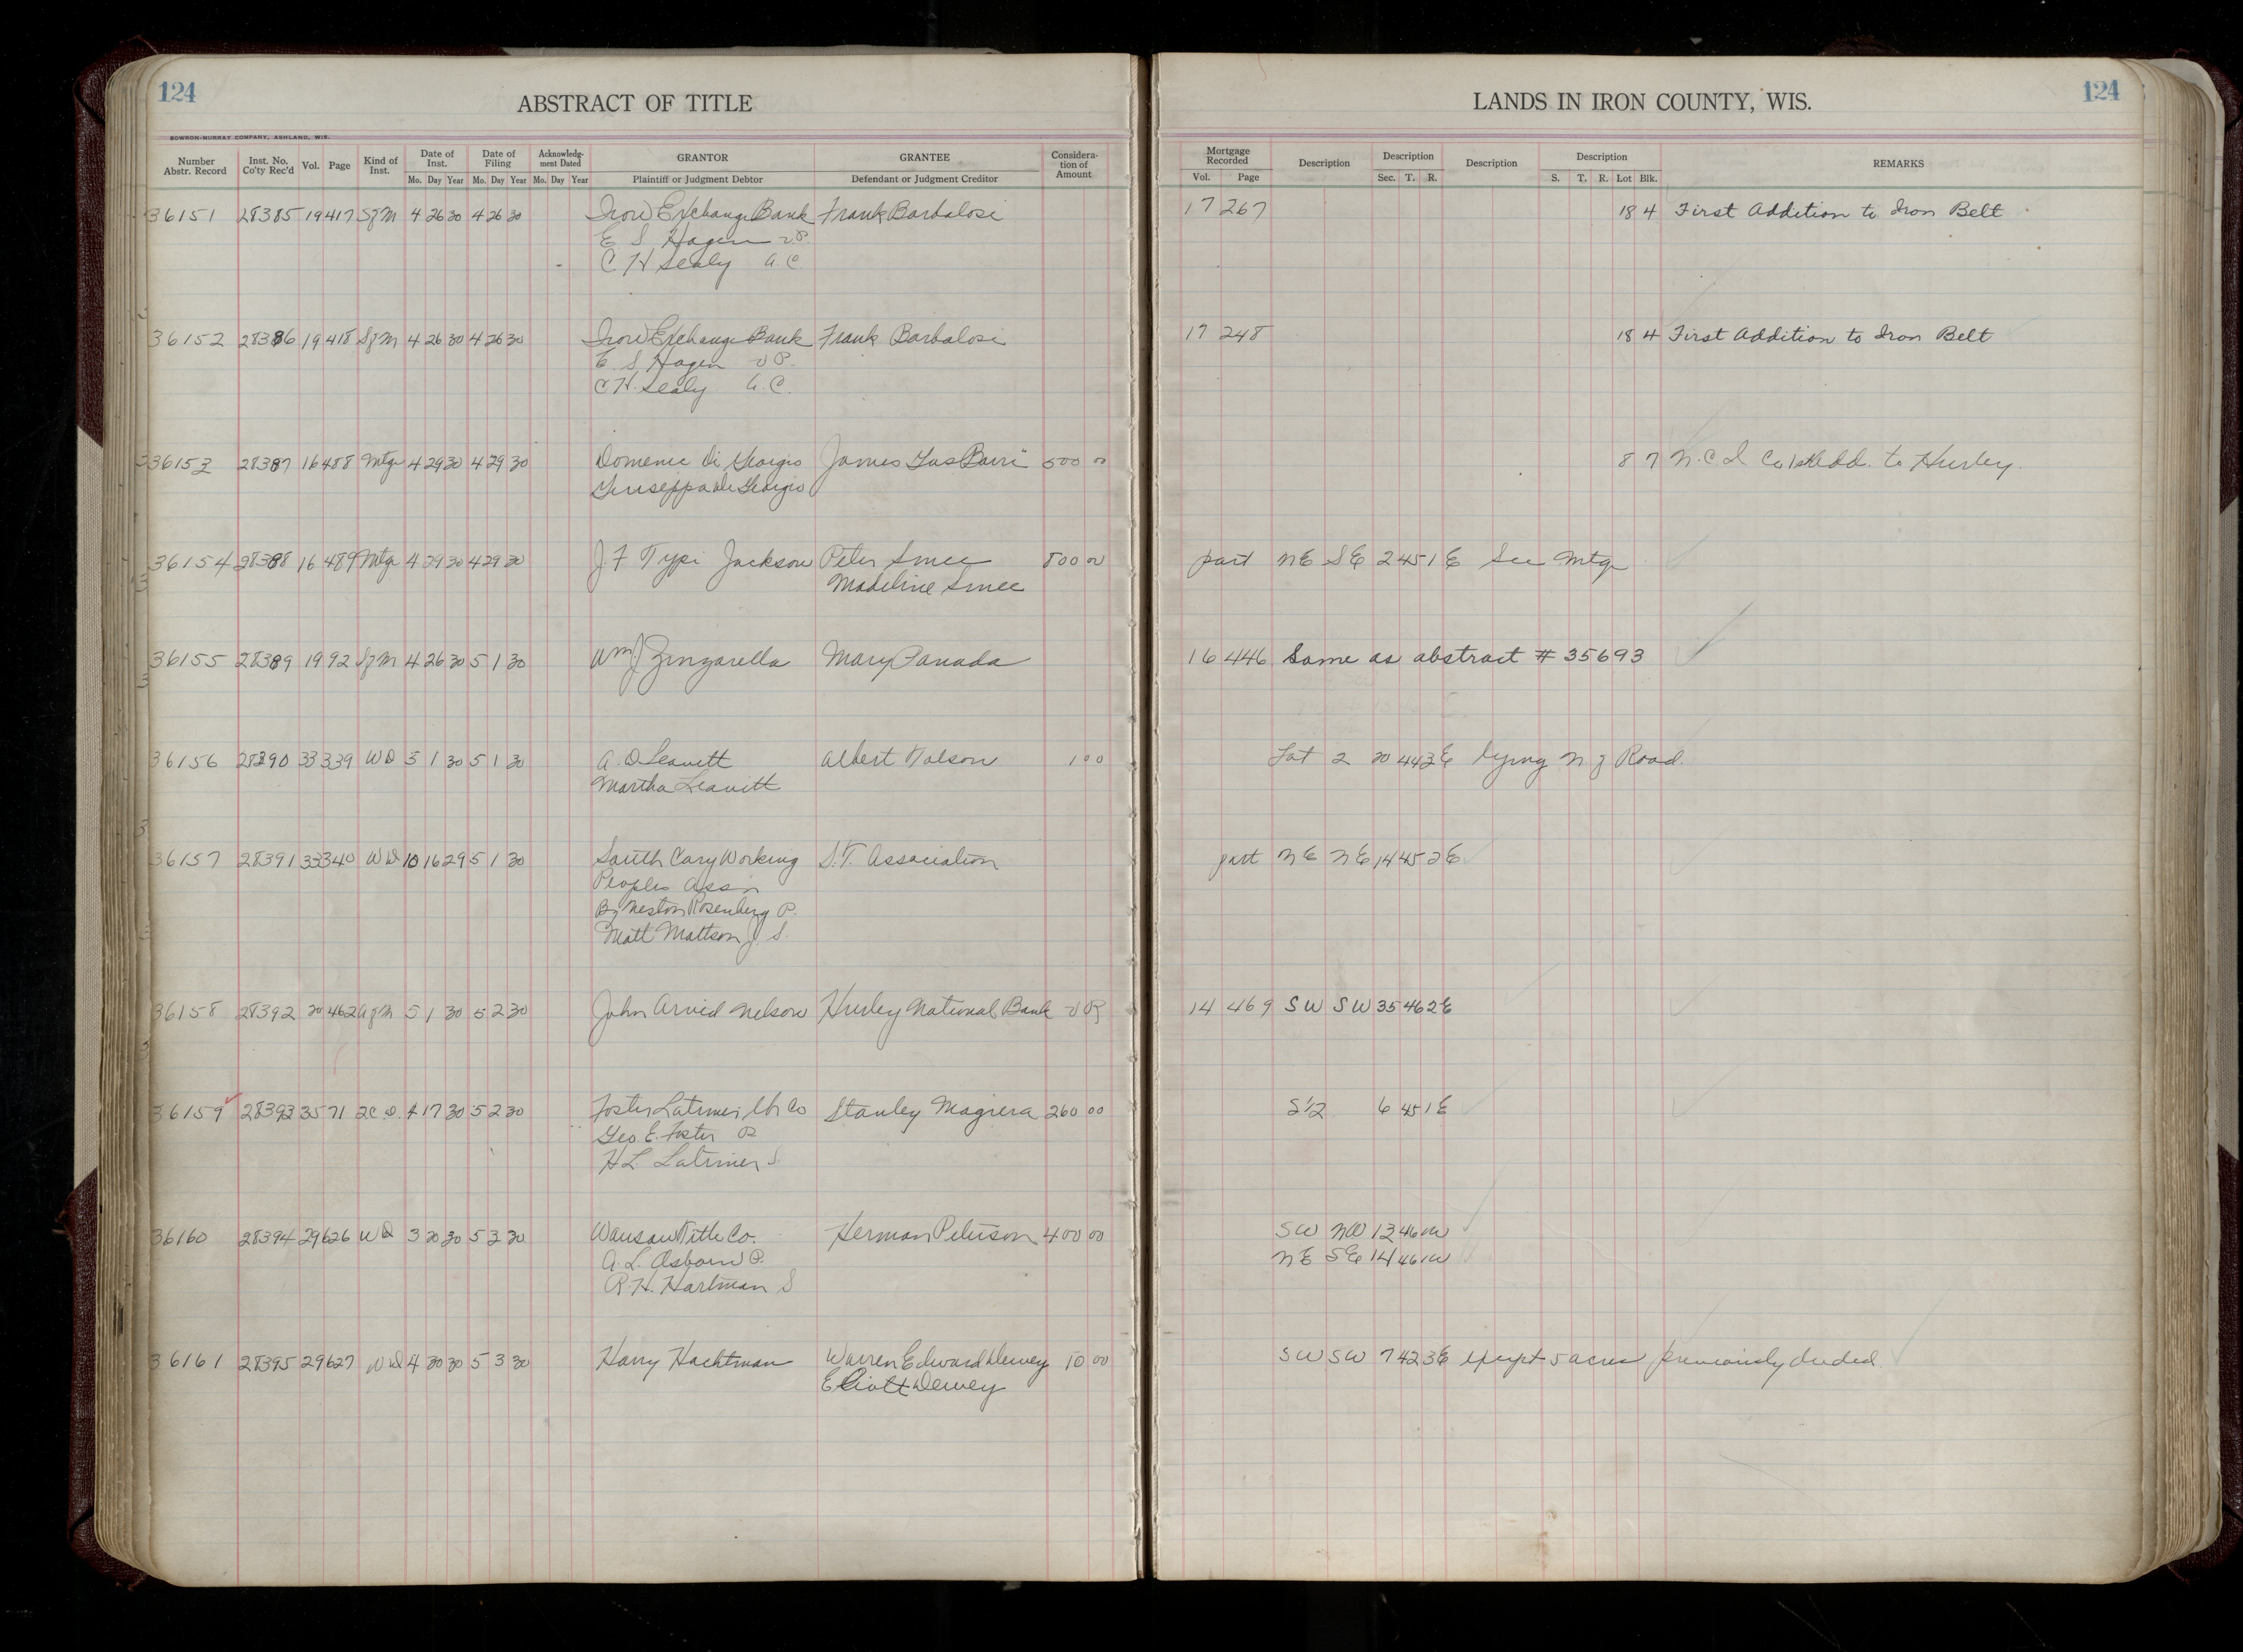 124
ABSTRACT OF TITLE
BOWRON-MURRAY COMPANY, ASHLAND, WIS.
Number Abstr. Record Inst. No. Co'ty Rec'd Vol. Page Kind of Inst. Date of Inst. Date of Filing Acknowledgment Dated GRANTOR GRANTEE Consideration of Amount
Mo. Day Year Mo. Day Year Mo. Day Year Plaintiff or Judgment Debtor Defendant or Judgment Creditor
36151 28385 19 417 SfM 4 26 30 4 26 30 Iron Exchange Bank Frank Barbalosi
E S Hagen V P.
C H Sealy A. C.
36152 28386 19 418 SfM 4 26 30 4 26 30 Iron Exchange Bank Frank Barbalosi
E. S. Hagen V P.
C H. Sealy A. C.
36153 28387 16 488 Mtg 4 29 30 4 29 30 Domenic Di Georgio James GasBarri 500 00
Giuseppa Di Georgio
36154 28388 16 489 Mtg 4 29 30 4 29 30 J. F Typi Jackson Peter Smec 800 00
Madeline Smec
36155 28389 19 92 SfM 4 26 30 5 1 30 Wm J Zinzarella Mary Panada
36156 28390 33 339 W D 5 1 30 5 1 30 A. D Leavitt Albert Tolson 1 00
Martha Leavitt
36157 28391 33 340 W D 10 16 29 5 1 30 South Cary Working S. T. Association
Peoples Assn
By Neston Rosenberg P.
Matt Mattson J. S.
36158 28392 20 462 AfM 5 1 30 5 2 30 John Arvid Nelson Hurley National Bank
36159 28393 35 71 2C D. 4 17 30 5 2 30 Foster Latimer Lbr Co Stanley Magiera 260 00
Geo. E. Foster P.
H L Latimer S.
36160 28394 29 626 W D 3 20 30 5 3 30 Wausau Title Co. Herman Peterson 400 00
A. L. Osborn P.
R. H. Hartman S
36161 28395 29 627 W D 4 30 30 5 3 30 Harry Hachtman Warren Edward Dewey 10 00
Eliott Dewey
LANDS IN IRON COUNTY, WIS.
124
Mortgage Recorded Description Description Description Description REMARKS
Vol. Page Sec. T. R. S. T. R. Lot Blk.
17 267 18 4 First Addition to Iron Belt
17 248 18 4 First Addition to Iron Belt
8 7 N. C I Co 1st Add. to Hurley.
part NE SE 2 45 1 E See Mtg
16 446 Same as abstract # 35693
Lot 2 20 44 3 E lying N of Road.
part NE NE 14 45 2 E
14 469 SW SW 35 46 2 E
S 1/2 6 45 1 E
SW NW 13 46 1W
NE SE 14 46 1W
SW SW 7 42 3 E except 5 acres previously deeded